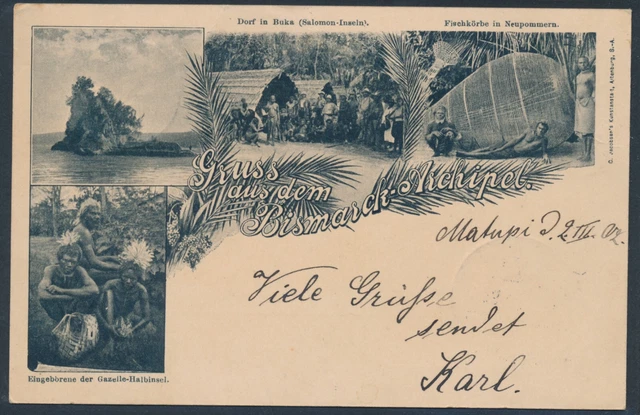 Dorf in Buka (Salomon-Inseln).
Fischkörbe in Neupommern.
C. Jacobsen's Kunstanstalt, Altenburg, S.-A.
Gruss
aus dem
Bismarck-Archipel.
Matupi d. 2. III. 02.
Viele Grüße
sendet
Karl.
Eingeborene der Gazelle-Halbinsel.